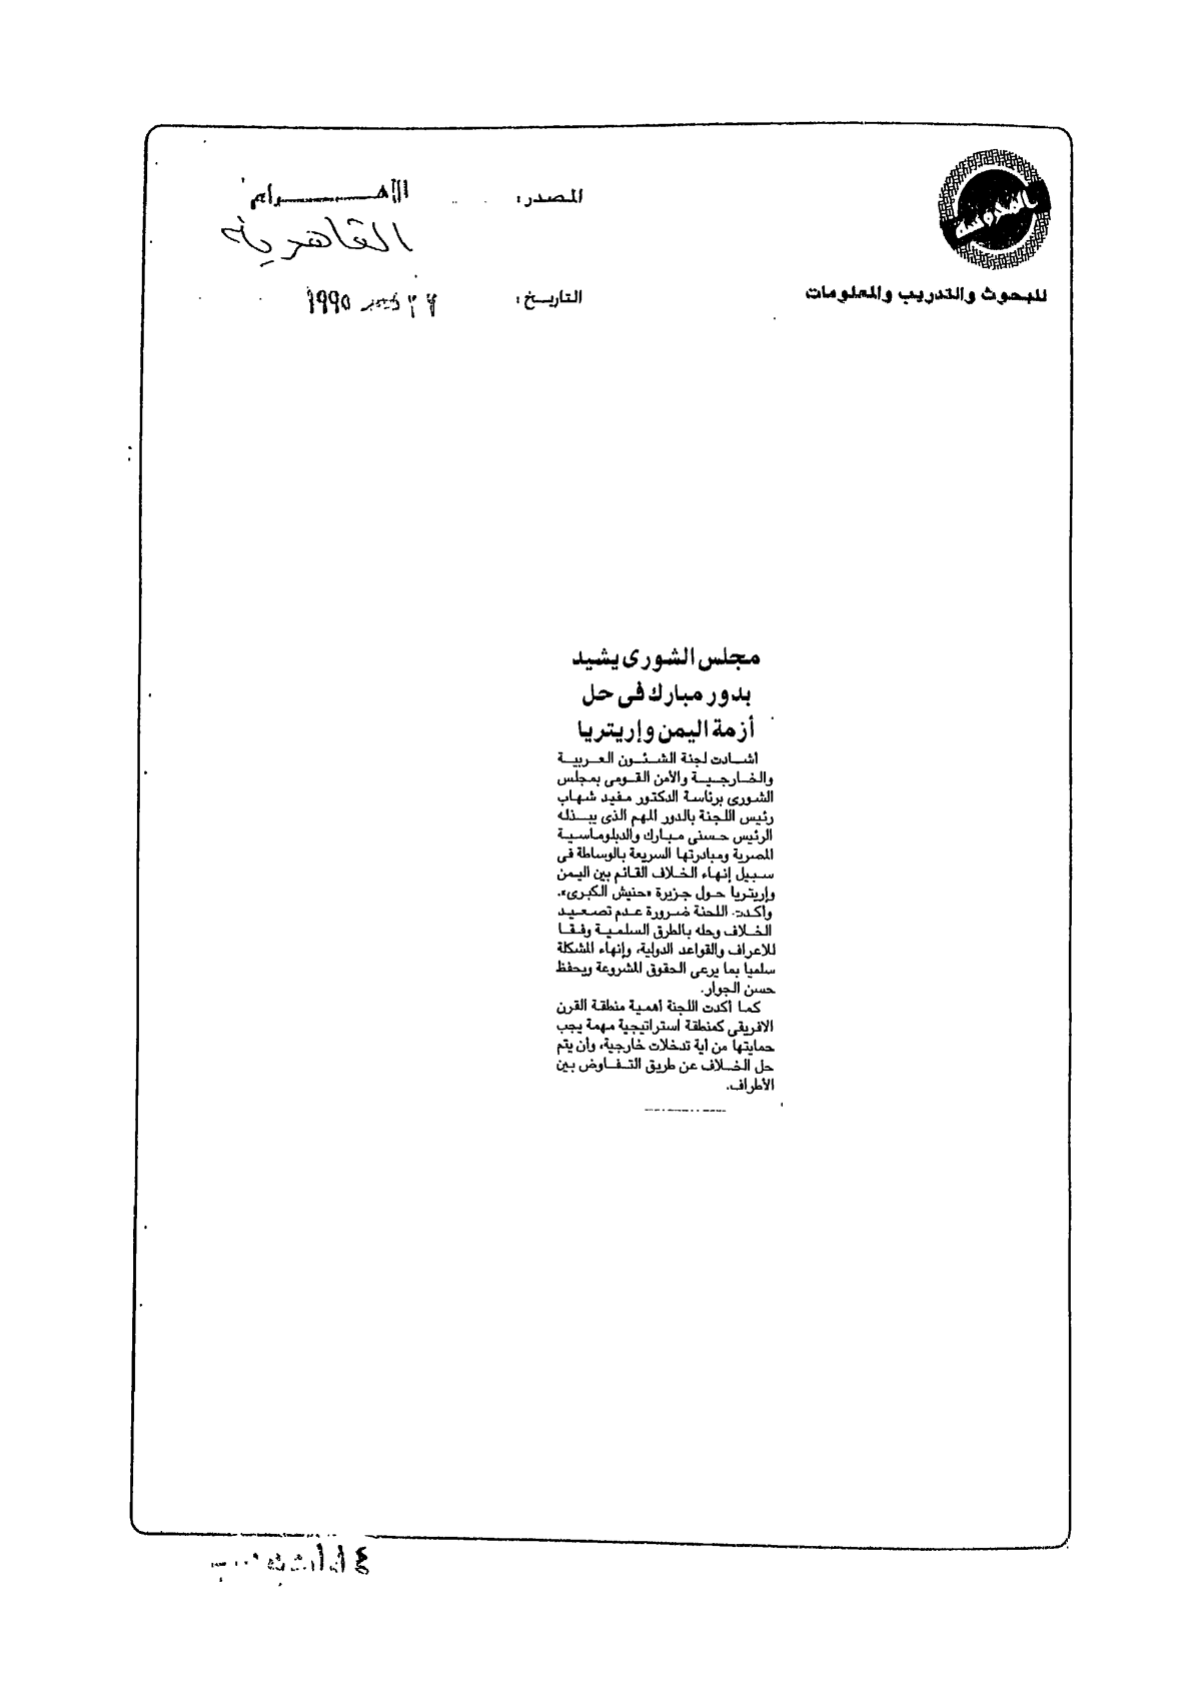 المحروسة
للبحوث والتدريب والمعلومات
المصدر: الأهـــرام
القاهرية
التاريخ: ديسمبر ١٩٩٥
مجلس الشورى يشيد
بدور مبارك فى حل
أزمة اليمن وإريتريا
أشــادت لجنة الشــئــون العــربيــة
والخــارجـيــة والأمن القــومى بمجلس
الشورى برئاسة الدكتور مفيد شهاب
رئيس اللجنة بالدور المهم الذى يبــذله
الرئيس حسنى مبارك والدبلوماسية
المصرية ومبادرتها السريعة بالوساطة فى
سبيل إنهاء الخلاف القائم بين اليمن
وإريتريا حول جزيرة «حنيش الكبرى».
وأكدت اللجنة ضرورة عدم تصعيد
الخلاف وحله بالطرق السلمية وفقا
للاعراف والقواعد الدولية، وإنهاء المشكلة
سلميا بما يرعى الحقوق المشروعة ويحفظ
حسن الجوار.
كما أكدت اللجنة أهمية منطقة القرن
الافريقى كمنطقة استراتيجية مهمة يجب
حمايتها من اية تدخلات خارجية، وأن يتم
حل الخلاف عن طريق التفاوض بين
الأطراف.